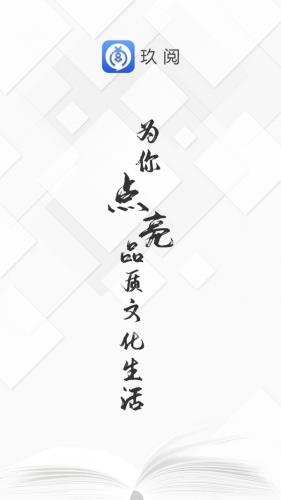 玖阅
为你
点亮
品质文化生活